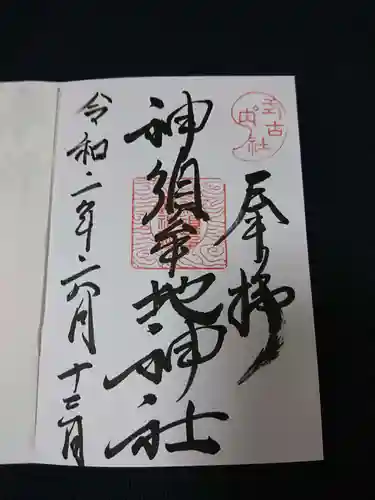 式内古社
奉拝
神須牟地神社
令和二年六月